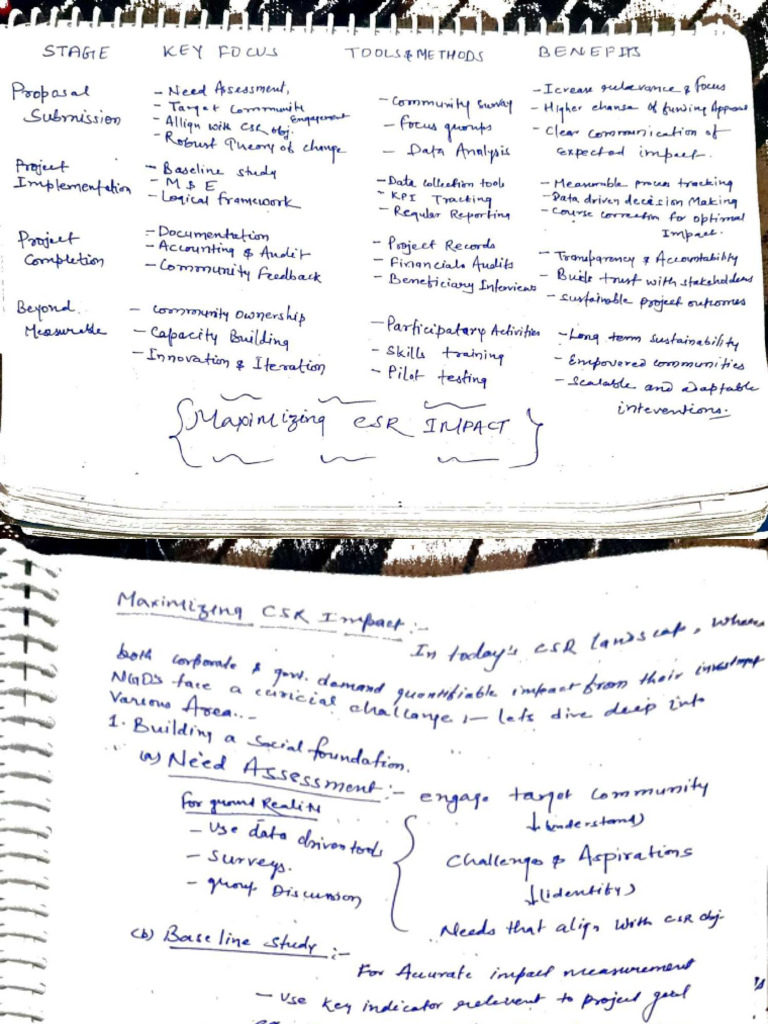 STAGE KEY FOCUS TOOLS & METHODS BENEFITS
Proposal Submission
- Need Assessment,
- Target Community Engagement
- Allign with CSR obj.
- Robust Theory of change
- Community Survey
- Focus groups
- Data Analysis
- Icrease relevance & focus
- Higher chanse of funding Approval
- Clear communication of
expected impact.
Project Implementation
- Baseline study
- M & E
- Logical framework
- Data collection tools
- KPI Tracking
- Regular Reporting
- Measurable process tracking
- Data driven decision Making
- Course correction for optimal
Impact.
Project Completion
- Documentation
- Accounting & Audit
- Community Feedback
- Project Records
- Financials Audits
- Beneficiary Interviews
- Transparency & Accountability
- Build trust with stakeholders
- Sustainable project outcomes
Beyond Measurable
- Community Ownership
- Capacity Building
- Innovation & Iteration
- Participatory Activities
- Skills training
- Pilot testing
- Long term sustainability
- Empowered communities
- Scalable and adaptable
interventions.
Maximizing CSR IMPACT
Maximizing CSR Impact:-
In today's CSR landscap, where
both corporate & govt. demand quantifiable impact from their investment
NGOs face a curicial challenge,:- lets dive deep into
Various Area..-
1. Building a social foundation.
(a) Need Assessment:- engage target community
For ground Reality
- Use data driven tools
- Surveys.
- group Discussion
↓(understand)
Challenges & Aspirations
↓(identity)
Needs that align with CSR obj-
(b) Baseline study:-
For Accurate impact measurement
- Use Key indicator relevent to project goal